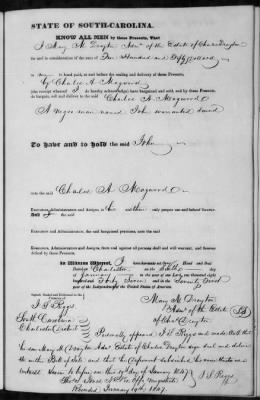 STATE OF SOUTH-CAROLINA.
KNOW ALL MEN by these Presents, That
I Mary M. Drayton Adm'x of the Estate of Charles Drayton
for and in consideration of the sum of Five Hundred and Fifty Dollars
to me in hand paid, at and before the sealing and delivery of these Presents,
by Charles A. Magwood
(the receipt whereof I do hereby acknowledge) have bargained and sold, and by these Presents,
do bargain, sell and deliver to the said Charles A. Magwood
A negro man named John warranted sound
To have and to hold the said John
unto the said Charles A Magwood
Executors, Administrators and Assigns, to his and their only proper use and behoof forever.
And I the said
Executors, and Administrators, the said bargained premises, unto the said
Executors, Administrators and Assigns, from and against all persons shall and will warrant, and forever
defend by these Presents.
In Witness Whereof, I have Hand and Seal
Dated at Charleston on the
day of January in the year of our Lord, one thousand eight
hundred and Forty Seven and in the Seventy First
year of the Independence of the United States of America
Signed, Sealed and Delivered in the
Presence of
Mary M. Drayton
Adm'x of the Estate
of Chas Drayton
South Carolina
Charleston District
Personally appeared and made oath that
he saw Mary M. Drayton Adm'x Estate of Charles Drayton sign seal and deliver
the within Bill of Sale and that
Sworn to before me this 19 January 1847
Recorded January 19th 1847.